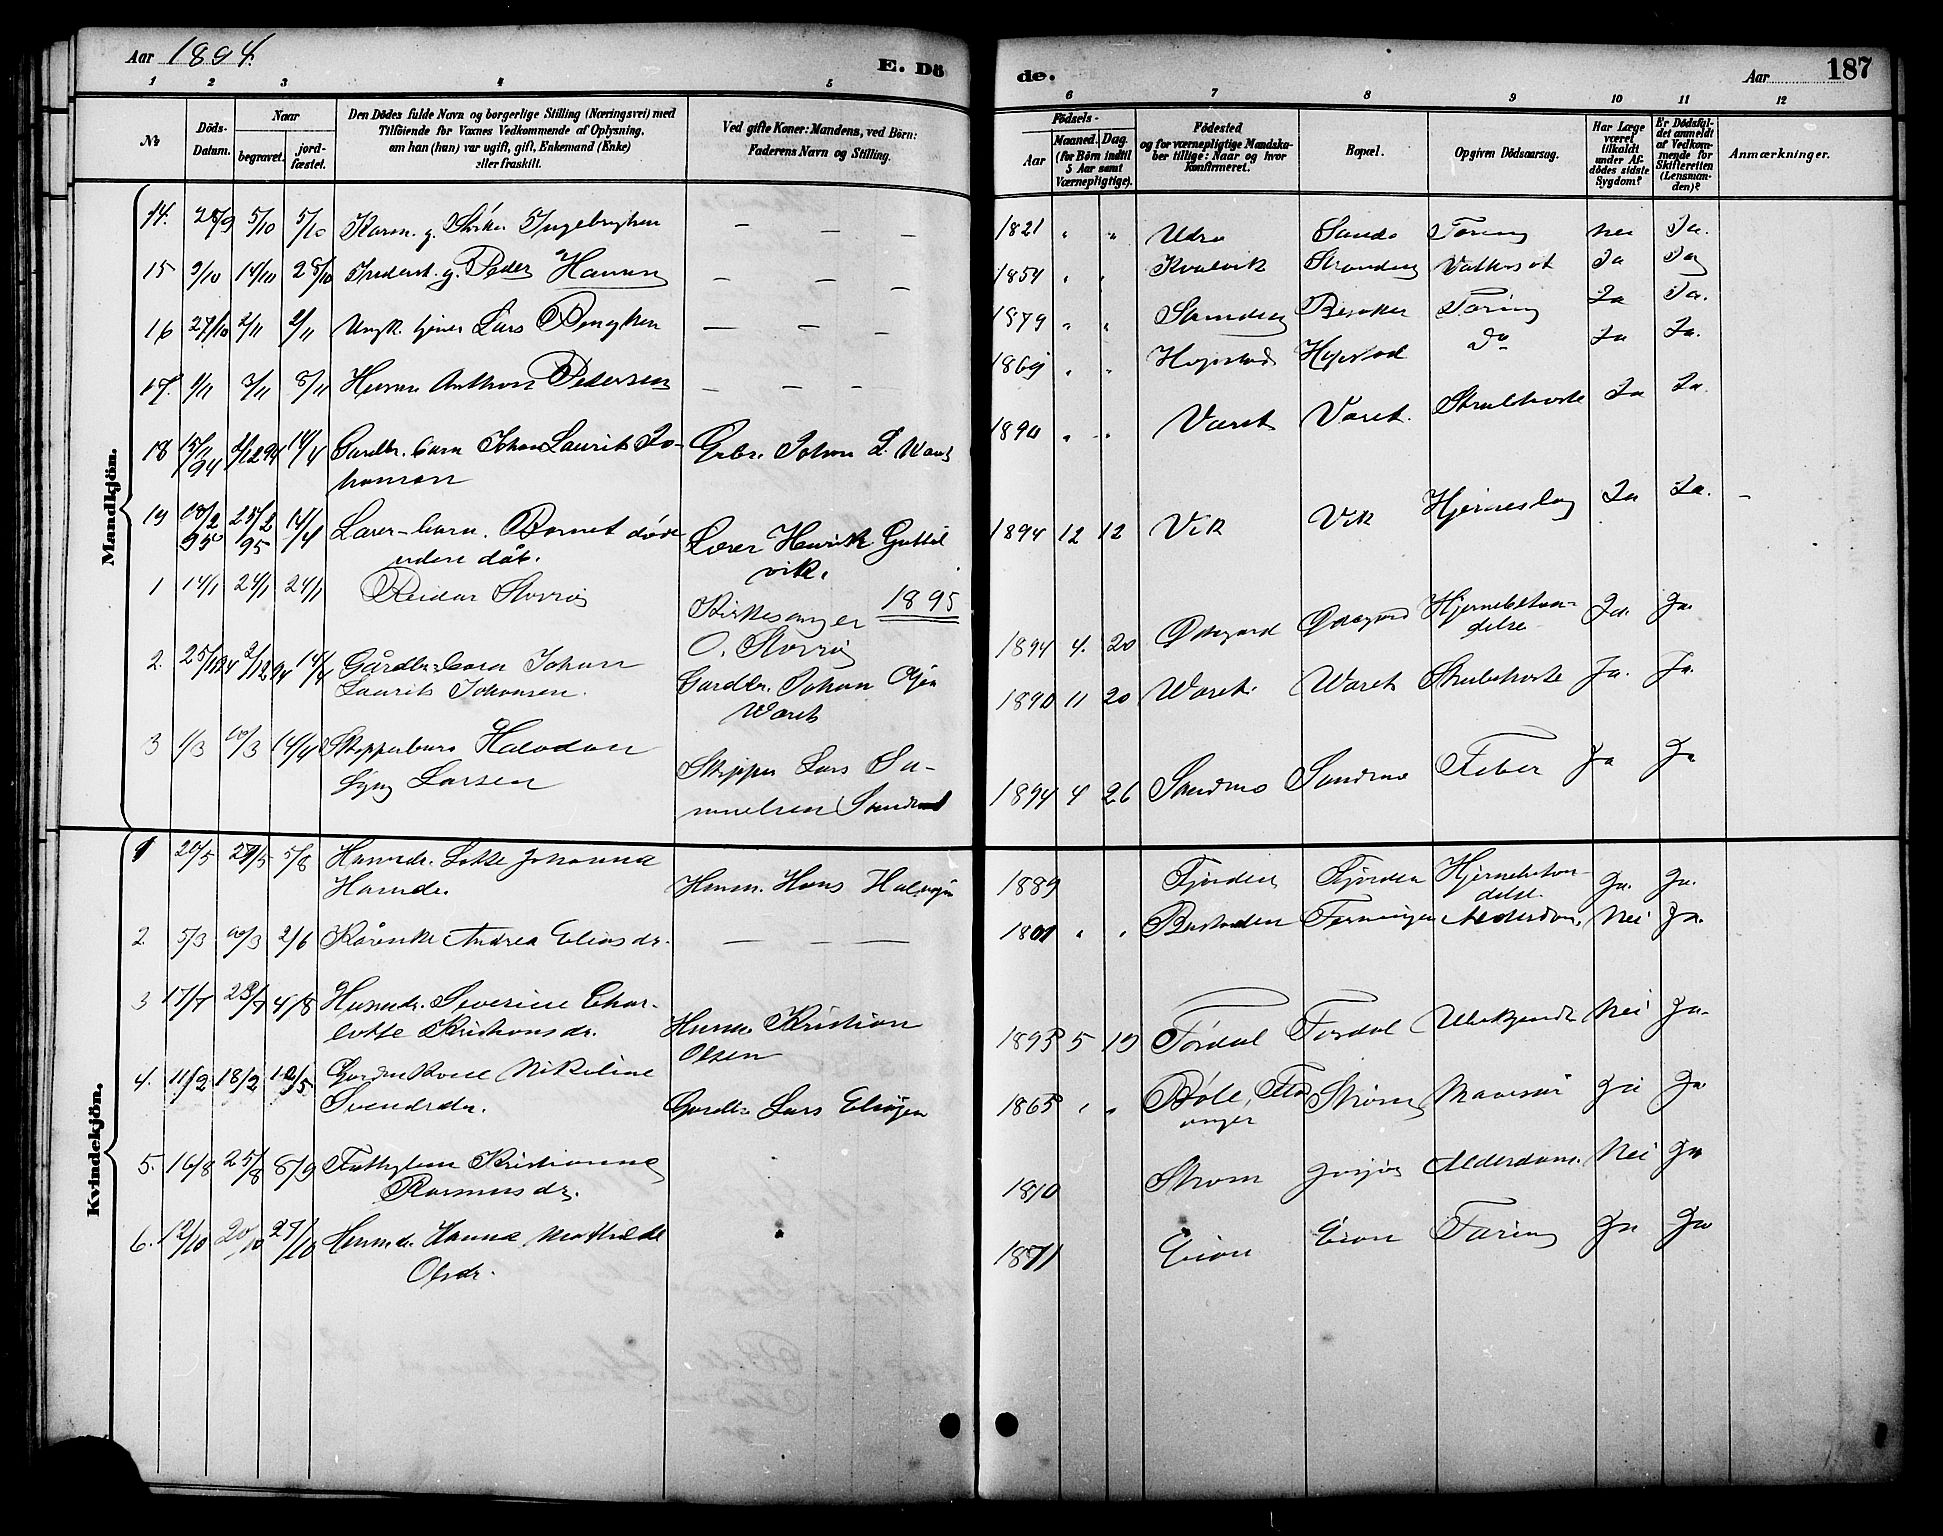 Aar 1894.
E. Dö
de.
Aar
187
1 2 3 4 5
6 7 8 9 10 11 12
No
Döds-Datum.
Naar
begravet.
jord-fæstet.
Den Dödes fulde Navn og borgerlige Stilling (Næringsvei) med
Tilföiende for Voxnes Vedkommende af Oplysning,
om han (hun) var ugift, gift, Enkemand (Enke)
eller fraskilt.
Ved gifte Koner: Mandens, ved Börn:
Faderens Navn og Stilling.
Födsels-
Aar
Maaned. Dag.
(for Börn indtil
5 Aar samt
Værnepligtige).
Födested
og for værnepligtige Mandska-
ber tillige: Naar og hvor
konfirmeret.
Bopæl.
Opgiven Dödsaarsag.
Har Læge
været
tilkaldt
under Af-
dödes sidste
Sygdom?
Er Dödsfal-
det anmeldt
af Vedkom-
mende for
Skifteretten
(Lensman-
den)?
Anmærkninger.
Mandkjön.
14. 28/9 5/10 5/10 Ingebrigtsen — — — 1821 " " Udro Sando Tæring Nei Ja.
15 3/10 14/10 28/10 g. Peder Hansen — — — 1854 " " Kvalvik Ja Ja
16 27/10 2/11 2/11 Ungk. Lars — — — 1879 " " Tæring Ja Ja.
17. 1/11 3/11 8/11 Husm. Anthon Pedersen — — — 1869 " " Hopstad Hopstad Do Ja Ja.
18 15/11 94 2/12 94 14/4 Gardbr. barn Johan Laurits Jo-
hansen
Grbr. Johan 1890 " " Været Været. Strubehoste Ja Ja.
19 18/2 95 25/2 95 14/4 Lærer-barn. Barnet døde
uden dåb.
Lærer Henrik Guttel
vik.
1894 12 12 Vik Vik Hjerneslag Ja Ja. —
1895
1 14/1 24/1 24/1 Reidar Storrø
Kirkesanger
O. Storrø
1894 4. 20 Hjernebetæn-
delse Ja. Ja.
2. 25/11 94 2/12 94 14/4 Gårdbr.barn Johan
Laurits Johansen.
Gardbr. Johan
Waret
1890 11 20 Waret. Waret Strubehoste Ja. Ja.
3 1/3 10/3 14/4 Skipperbarn Halvdan
Larsen
Skipper Lars Sa-
muelsen Sandmo
1894 4 26 Sandmo Sandmo Feber Ja Ja
Kvindekjön.
1 20/5 27/5 5/8 Husmdr. Lotte Johanna
Hansdr.
Husm. Hans
1889 Fjorden Fjorden Hjernebetæn-
delse Ja. Ja.
2 5/3 10/3 2/6 Kårenke Andrea Eliasdr. — — — " " Alderdom. Nei Ja.
3 17/7 23/7 4/8 Husmdr. Severine Char-
lotte Kristiansdr.
Husm. Kristian
Olsen
1895 5 19 Tørdal Tørdal Ubekjendt Nei Ja.
4. 11/2 18/2 12/5 Gardm.kone Nikoline
Svendsdr.
Gardbr. Lars
1865 " " Ja Ja
5. 16/8 25/8 8/9 Fattiglem Kristianna
Rasmusdr.
1810 Strøm Alderdom. Nei Ja
6. 12/10 20/10 27/10 Husmdr. Hanna Mathilde
Olsdr.
1871 Eion Eion Tæring Ja Ja